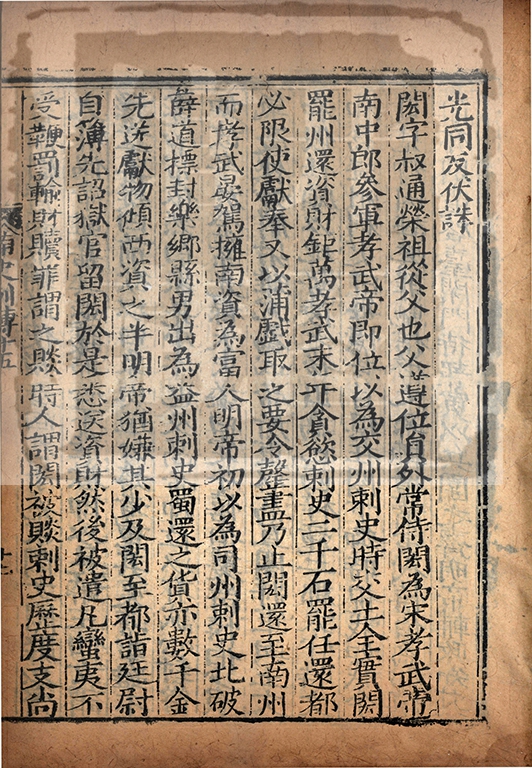 光同反伏誅
閎字叔通榮祖從父也父遵位員外常侍閎為宋孝武帝
南中郎參軍孝武帝即位以為交州刺史時交土全實閎
罷州還資財鉅萬孝武末年貪慾刺史二千石罷任還都
必限使獻奉又以蒱戲取之要令罄盡乃止閎還至南州
而孝武晏駕擁南資為富人明帝初以為司州刺史北破
薛道摽封樂鄉縣男出為益州刺史蜀還之貨亦數千金
先送獻物傾西資之半明帝猶嫌其少及閎至都詣廷尉
自簿先詔獄官留閎於是悉送資財然後被遣凡蠻夷不
受鞭罰輸財贖罪謂之賧時人謂閎被賧刺史歷度支尚
南史列傳十五